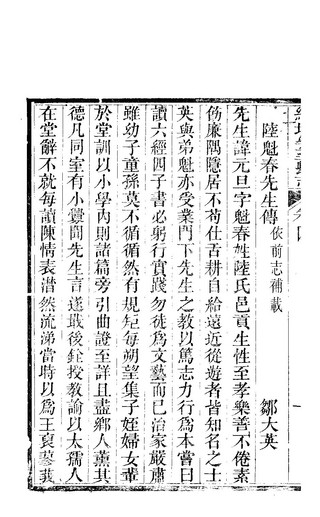 陸魁春先生傳 依前志補載 鄒大英
先生諱元旦字魁春姓陸氏邑貢生性至孝樂善不倦素
飭廉隅隱居不苟仕舌耕自給遠近從遊者皆知名之士
英與弟魁亦受業門下先生之教以篤志力行為本嘗曰
讀六經四子書必躬行實踐勿徒為文藝而已治家嚴肅
雖幼子童孫莫不循循然有規矩每朔望集子姪婦女輩
於堂訓以小學內則諸篇旁引曲證至詳且盡鄉人薰其
德凡同室有小釁聞先生言遂戢後銓授教諭以太孺人
在堂辭不就每讀陳情表潸然流涕當時以為王裒蓼莪